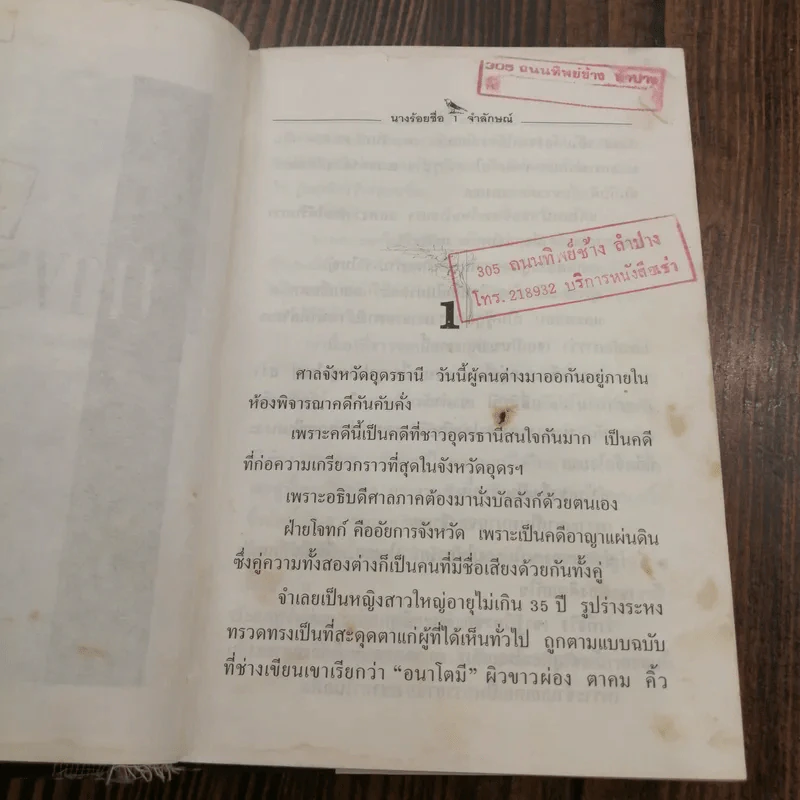 305 ถนนทิพย์ช้าง ลำปาง
นางร้อยชื่อ 1 จำลักษณ์
305 ถนนทิพย์ช้าง ลำปาง
โทร. 218932 บริการหนังสือเช่า
1
ศาลจังหวัดอุดรธานี วันนี้ผู้คนต่างมาออกันอยู่ภายใน
ห้องพิจารณาคดีกันคับคั่ง
เพราะคดีนี้เป็นคดีที่ชาวอุดรธานีสนใจกันมาก เป็นคดี
ที่ก่อความเกรียวกราวที่สุดในจังหวัดอุดรฯ
เพราะอธิบดีศาลภาคต้องมานั่งบัลลังก์ด้วยตนเอง
ฝ่ายโจทก์ คืออัยการจังหวัด เพราะเป็นคดีอาญาแผ่นดิน
ซึ่งคู่ความทั้งสองต่างก็เป็นคนที่มีชื่อเสียงด้วยกันทั้งคู่
จำเลยเป็นหญิงสาวใหญ่อายุไม่เกิน 35 ปี รูปร่างระหง
ทรวดทรงเป็นที่สะดุดตาแก่ผู้ที่ได้เห็นทั่วไป ถูกตามแบบฉบับ
ที่ช่างเขียนเขาเรียกว่า “อนาโตมี” ผิวขาวผ่อง ตาคม คิ้ว